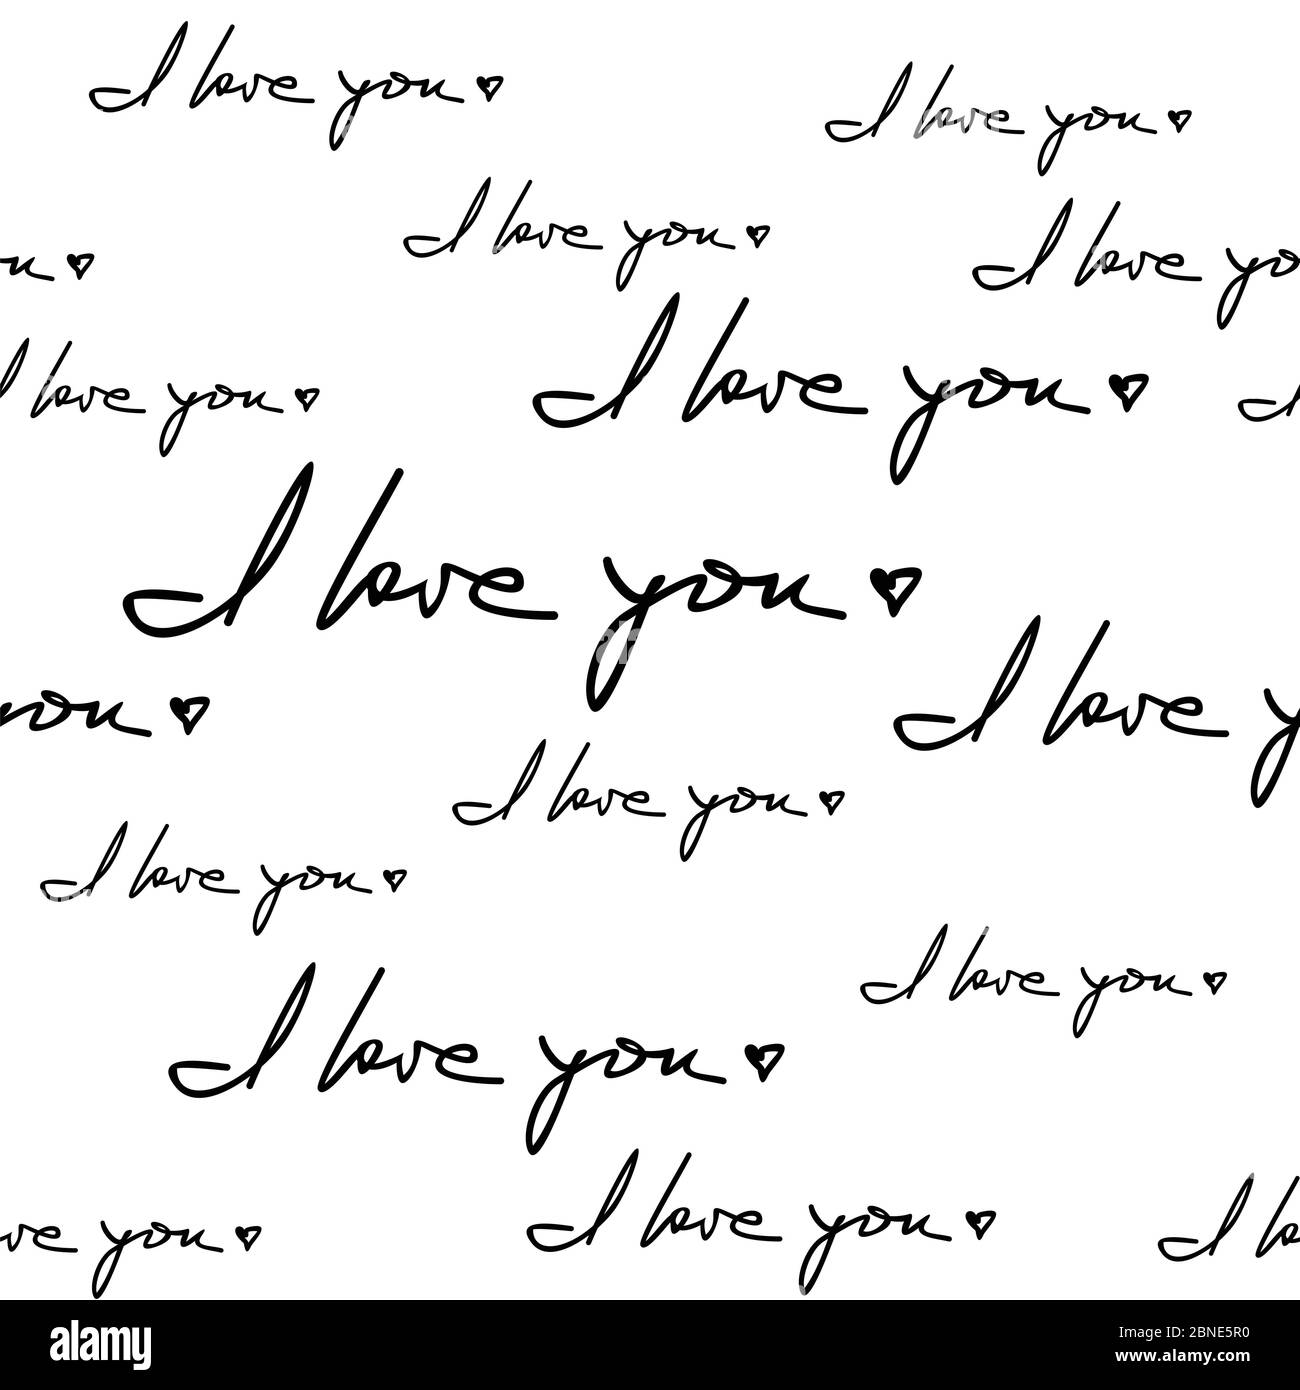 I love you
I love you
I love you
I love yo
ou
I love you
I love you
I
I love you
I love y
you
I love you
I love you
I love you
I love you
I love you
ve you
I lo
alamy
Image ID: 2BNE5R0
www.alamy.com